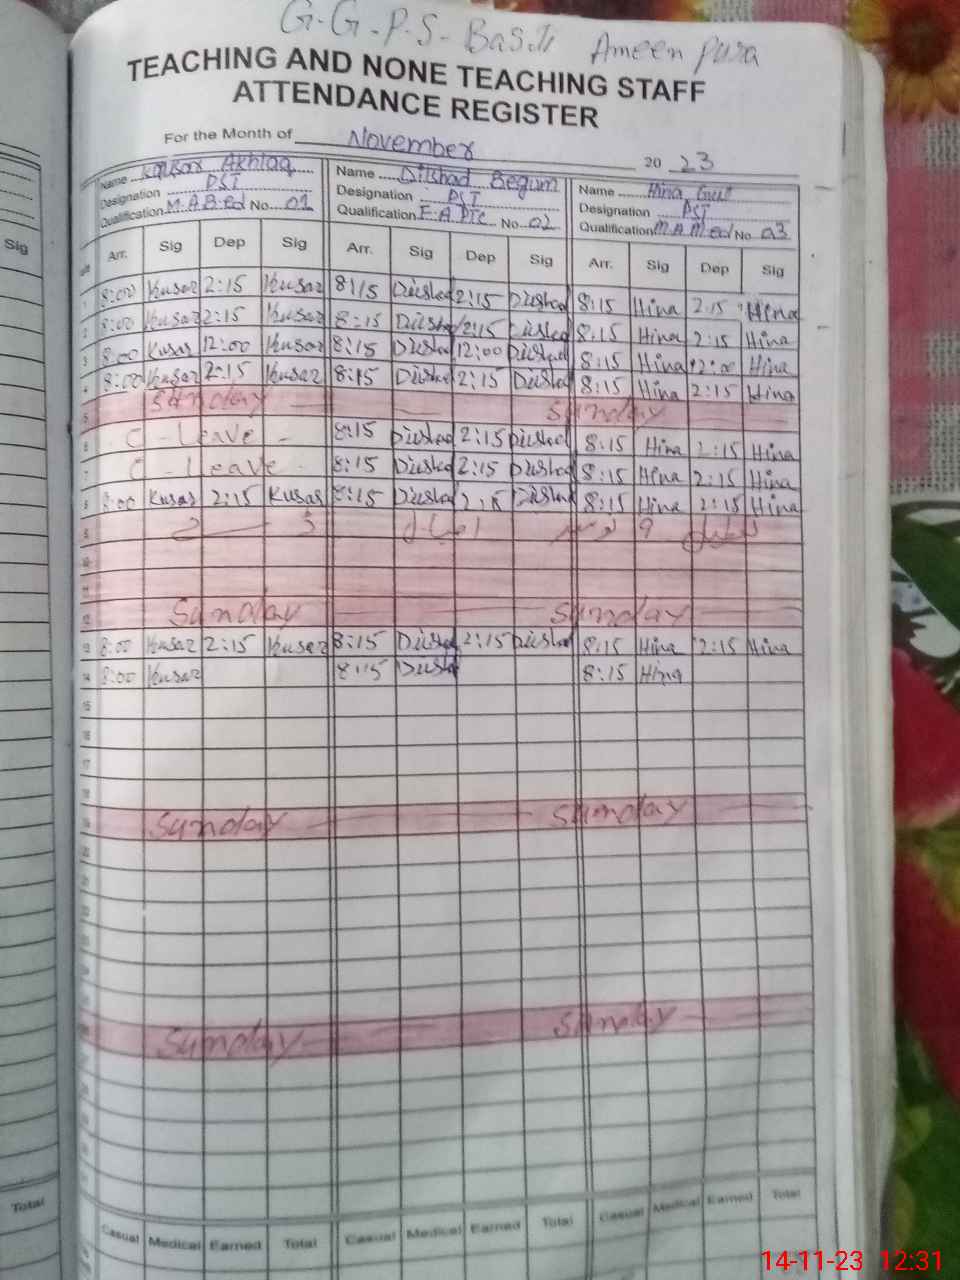 G.G.P.S. Basti Ameen pura
TEACHING AND NONE TEACHING STAFF
ATTENDANCE REGISTER
For the Month of November 20 23
Name Kausar Akhlaq Name Dilshad Begum Name Hina Gul
Designation PST Designation PST Designation PST
Qualification M.A B.ed No. 01 Qualification F.A PTC No. 02 Qualification M.A M.ed No. 03
Sig Arr. Sig Dep Sig Arr. Sig Dep Sig Arr. Sig Dep Sig
1 8:00 Kusar 2:15 Kusar 8:15 Dilshad 2:15 Dilshad 8:15 Hina 2:15 Hina
2 8:00 Kusar 2:15 Kusar 8:15 Dilshad 2:15 Dilshad 8:15 Hina 2:15 Hina
3 8:00 Kusar 12:00 Kusar 8:15 Dilshad 12:00 Dilshad 8:15 Hina 12:00 Hina
4 8:00 Kusar 2:15 Kusar 8:15 Dilshad 2:15 Dilshad 8:15 Hina 2:15 Hina
5 Sunday Sunday
6 C - Leave - 8:15 Dilshad 2:15 Dilshad 8:15 Hina 2:15 Hina
7 C - Leave 8:15 Dilshad 2:15 Dilshad 8:15 Hina 2:15 Hina
8 8:00 Kusar 2:15 Kusar 8:15 Dilshad 2:15 Dilshad 8:15 Hina 2:15 Hina
9 تعطیل 9 نومبر اقبال ڈے
10
11
12 Sunday Sunday
13 8:00 Kusar 2:15 Kusar 8:15 Dilshad 2:15 Dilshad 8:15 Hina 2:15 Hina
14 8:00 Kusar 8:15 Dilshad 8:15 Hina
15
16
17
18
19 Sunday Sunday
20
21
22
23
24
25
26 Sunday Sunday
Total Casual Medical Earned Total Casual Medical Earned Total Casual Medical Earned Total
14-11-23 12:31